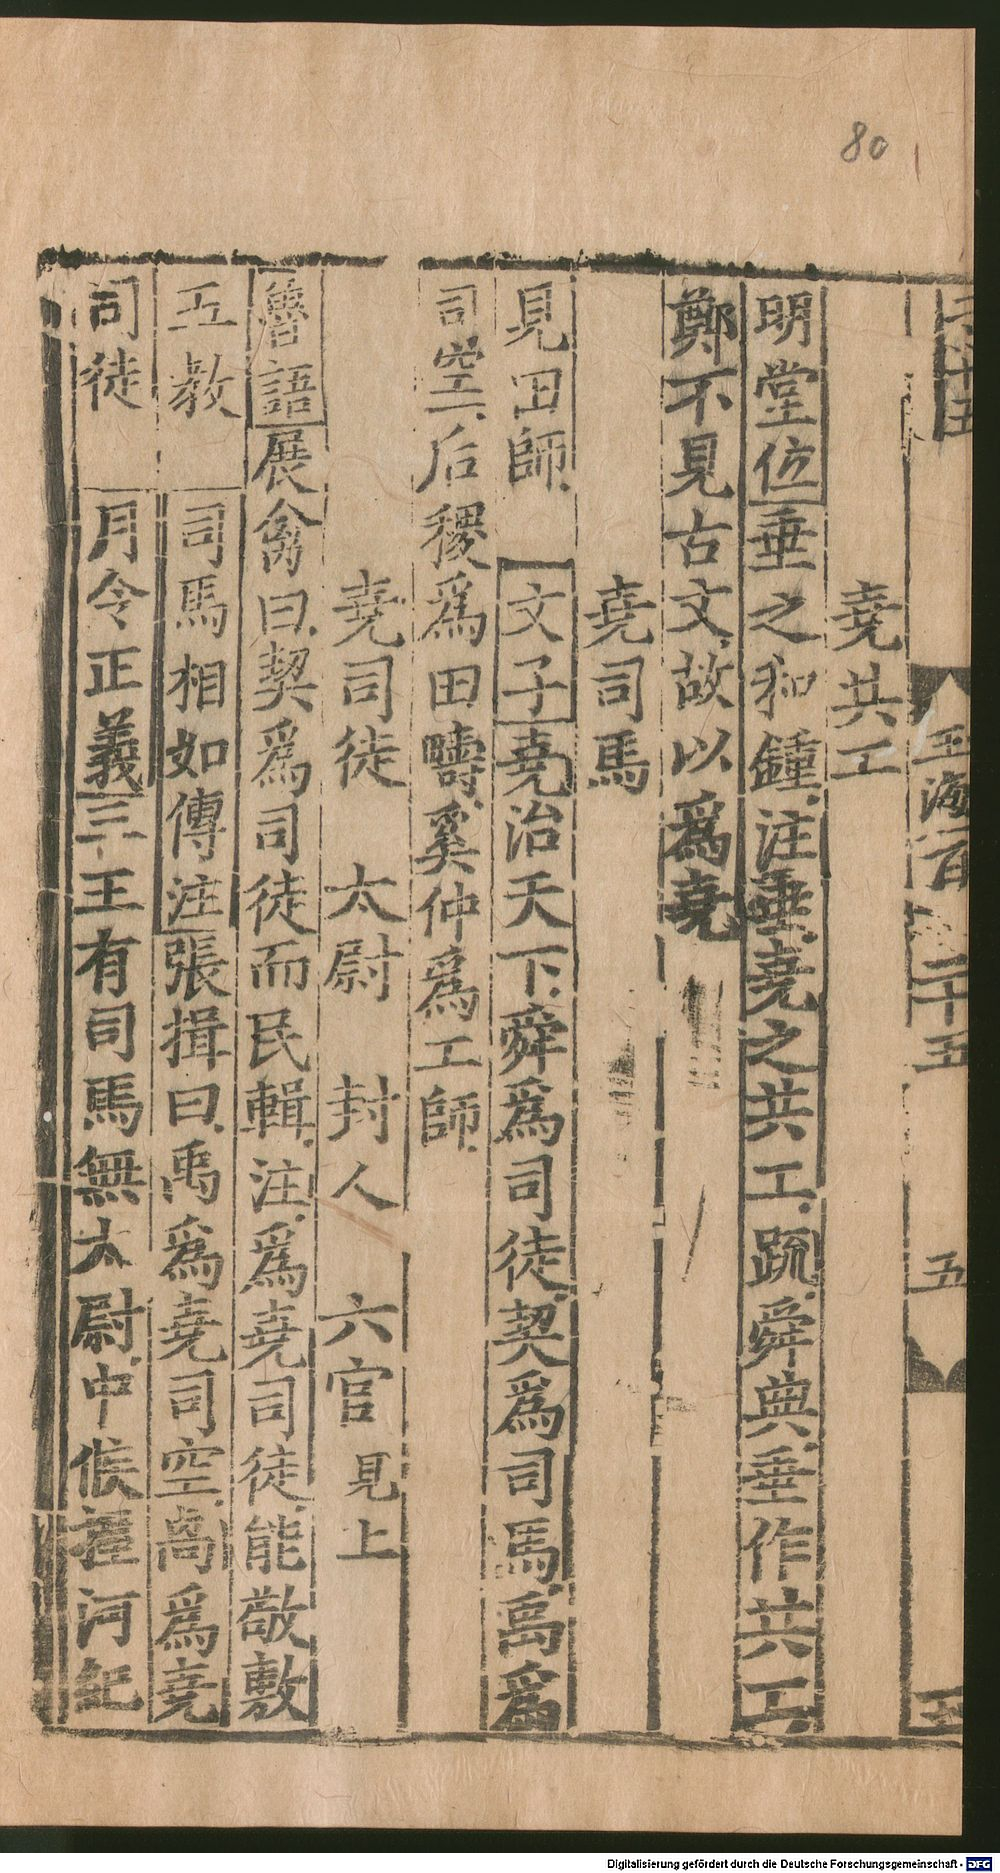 80
玉海百二十五
五
堯共工
明堂位垂之和鍾注垂堯之共工疏舜典垂作共工
鄭不見古文故以爲堯
堯司馬
見田師 文子堯治天下舜爲司徒契爲司馬禹爲
司空后稷爲田疇奚仲爲工師
堯司徒 太尉 封人 六官見上
魯語展禽曰契爲司徒而民輯注爲堯司徒能敬敷
五教 司馬相如傳注張揖曰禹爲堯司空卨爲堯
司徒 月令正義三王有司馬無太尉中候握河紀
Digitalisierung gefördert durch die Deutsche Forschungsgemeinschaft - DFG